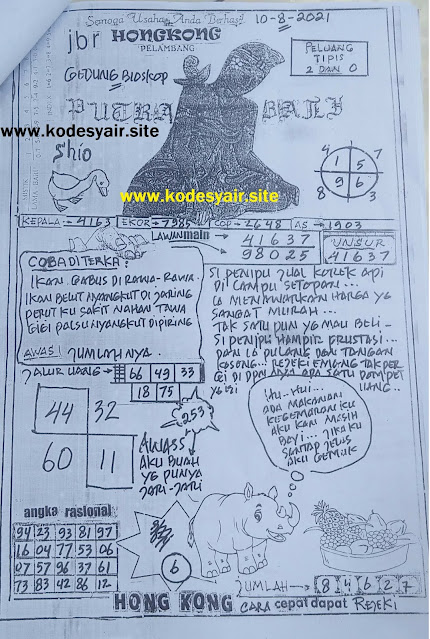 Semoga Usahan Anda Berhasil
10-8-2021
jbr HONGKONG
PELAMBANG
PELUANG
TIPIS
2 DAN 0
GEDUNG BIOSKOP
PUTRA BALI
www.kodesyair.site
Shio
www.kodesyair.site
4 7
1 5
9 6
8 3
KEPALA = 4163 EKOR = 7985 COP = 2648 AS = 1903
LAWAN main
41637
98025
UNSUR
41637
COBA DITERKA:
IKAN GABUS DI RAWA-RAWA.
IKAN BELUT NYANGKUT DI JARING
PERUT KU SAKIT NAHAN TAWA
GIGI PALSU NYANGKUT DIPIRING
AWAS! JUMLAHNYA.
SI PENIPU JUAL KOREK API
DI LAMPU SETOPAN...
IA MENAWARKAN HARGA YG
SANGAT MURAH...
TAK SATU PUN YG MAU BELI -
SI PENIPU HAMPIR FRUSTASI...
DAN IA PULANG DGN TANGAN
KOSONG... REJEKI EMANG TAK PER
GI DI DPN ADA SATU DOMPET
YG ISI UANG.
JALUR UANG = 66 49 33
18 75
44 32
60 11
253
AWASS
AKU BUAH
YG PUNYA
JARI-JARI
HU-HUI...
ADA MAKANAN
KEGEMARANKU
AKU KAN MASIH
BAYI... JIKA KU
SANTAP TERUS
AKU GEMUK
angka rasional
94 23 93 81 97
16 04 77 53 06
07 57 96 37 61
73 83 42 86 12
6
JUMLAH → 8 4 6 2 7
HONG KONG CARA cepat dapat REJEKI